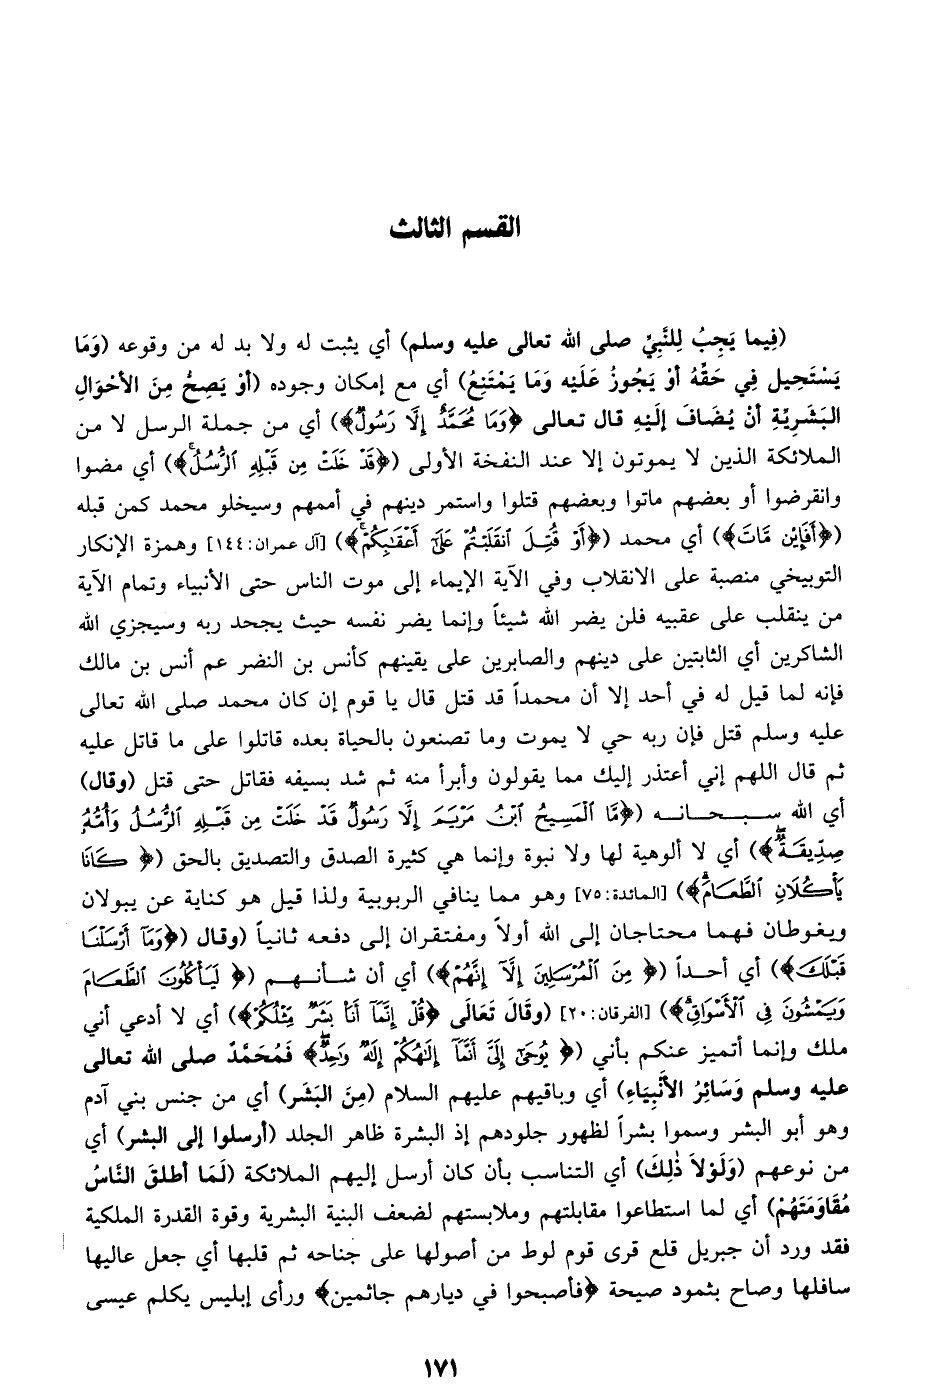 القسم الثالث
(فِيما يَجِبُ لِلنَّبِيِّ صلى الله تعالى عليه وسلم) أي يثبت له ولا بد له من وقوعه (وَمَا
يَسْتَحِيل فِي حَقِّهُ أوْ يَجُوزُ عَلَيْه وَمَا يَمْتَنِعُ) أي مع إمكان وجوده (أوْ يَصِحُّ مِنَ الأحْوَالِ
البَشَرِيَّةِ أنْ يُضَافَ إلَيْهِ قال تعالى ﴿وَمَا مُحَمَّدٌ إِلَّا رَسُولٌ﴾) أي من جملة الرسل لا من
الملائكة الذين لا يموتون إلا عند النفخة الأولى (﴿قَدْ خَلَتْ مِن قَبْلِهِ ٱلرُّسُلُۚ﴾) أي مضوا
وانقرضوا أو بعضهم ماتوا وبعضهم قتلوا واستمر دينهم في أممهم وسيخلو محمد كمن قبله
(﴿أَفَإِيْن مَّاتَ﴾) أي محمد (﴿أَوْ قُتِلَ ٱنقَلَبْتُمْ عَلَىٰٓ أَعْقَٰبِكُمْۚ﴾) [آل عمران: ١٤٤] وهمزة الإنكار
التوبيخي منصبة على الانقلاب وفي الآية الإيماء إلى موت الناس حتى الأنبياء وتمام الآية
من ينقلب على عقبيه فلن يضر الله شيئاً وإنما يضر نفسه حيث يجحد ربه وسيجزي الله
الشاكرين أي الثابتين على دينهم والصابرين على يقينهم كأنس بن النضر عم أنس بن مالك
فإنه لما قيل له في أحد إلا أن محمداً قد قتل قال يا قوم إن كان محمد صلى الله تعالى
عليه وسلم قتل فإن ربه حي لا يموت وما تصنعون بالحياة بعده قاتلوا على ما قاتل عليه
ثم قال اللهم إني أعتذر إليك مما يقولون وأبرأ منه ثم شد بسيفه فقاتل حتى قتل (وقال)
أي الله سبحانه (﴿مَّا ٱلْمَسِيحُ ٱبْنُ مَرْيَمَ إِلَّا رَسُولٌ قَدْ خَلَتْ مِن قَبْلِهِ ٱلرُّسُلُ وَأُمُّهُۥ
صِدِّيقَةٌۖ﴾) أي لا ألوهية لها ولا نبوة وإنما هي كثيرة الصدق والتصديق بالحق (﴿كَانَا
يَأْكُلَانِ ٱلطَّعَامَۗ﴾) [المائدة: ٧٥] وهو مما ينافي الربوبية ولذا قيل هو كناية عن يبولان
ويغوطان فهما محتاجان إلى الله أولاً ومفتقران إلى دفعه ثانياً (وقال (﴿وَمَآ أَرْسَلْنَا
قَبْلَكَ﴾) أي أحداً (﴿مِنَ ٱلْمُرْسَلِينَ إِلَّآ إِنَّهُمْ﴾) أي أن شأنهم (﴿لَيَأْكُلُونَ ٱلطَّعَامَ
وَيَمْشُونَ فِى ٱلْأَسْوَاقِۗ﴾) [الفرقان: ٢٠] (وقَالَ تَعَالَى ﴿قُلْ إِنَّمَآ أَنَا۠ بَشَرٌ مِّثْلُكُمْ﴾) أي لا أدعي أني
ملك وإنما أتميز عنكم بأني (﴿يُوحَىٰٓ إِلَىَّ أَنَّمَآ إِلَٰهُكُمْ إِلَٰهٌ وَٰحِدٌۖ﴾ فَمُحَمَّدٌ صلى الله تعالى
عليه وسلم وَسَائِرُ الأَنْبِيَاءِ) أي وباقيهم عليهم السلام (مِنَ البَشَر) أي من جنس بني آدم
وهو أبو البشر وسموا بشراً لظهور جلودهم إذ البشرة ظاهر الجلد (أرسلوا إلى البشر) أي
من نوعهم (وَلَوْلاَ ذٰلِكَ) أي التناسب بأن كان أرسل إليهم الملائكة (لَمَا أطلقَ النَّاسُ
مُقَاوَمَتَهُمْ) أي لما استطاعوا مقابلتهم وملابستهم لضعف البنية البشرية وقوة القدرة الملكية
فقد ورد أن جبريل قلع قرى قوم لوط من أصولها على جناحه ثم قلبها أي جعل عاليها
سافلها وصاح بثمود صيحة ﴿فأصبحوا في ديارهم جاثمين﴾ ورأى إبليس يكلم عيسى
١٧١